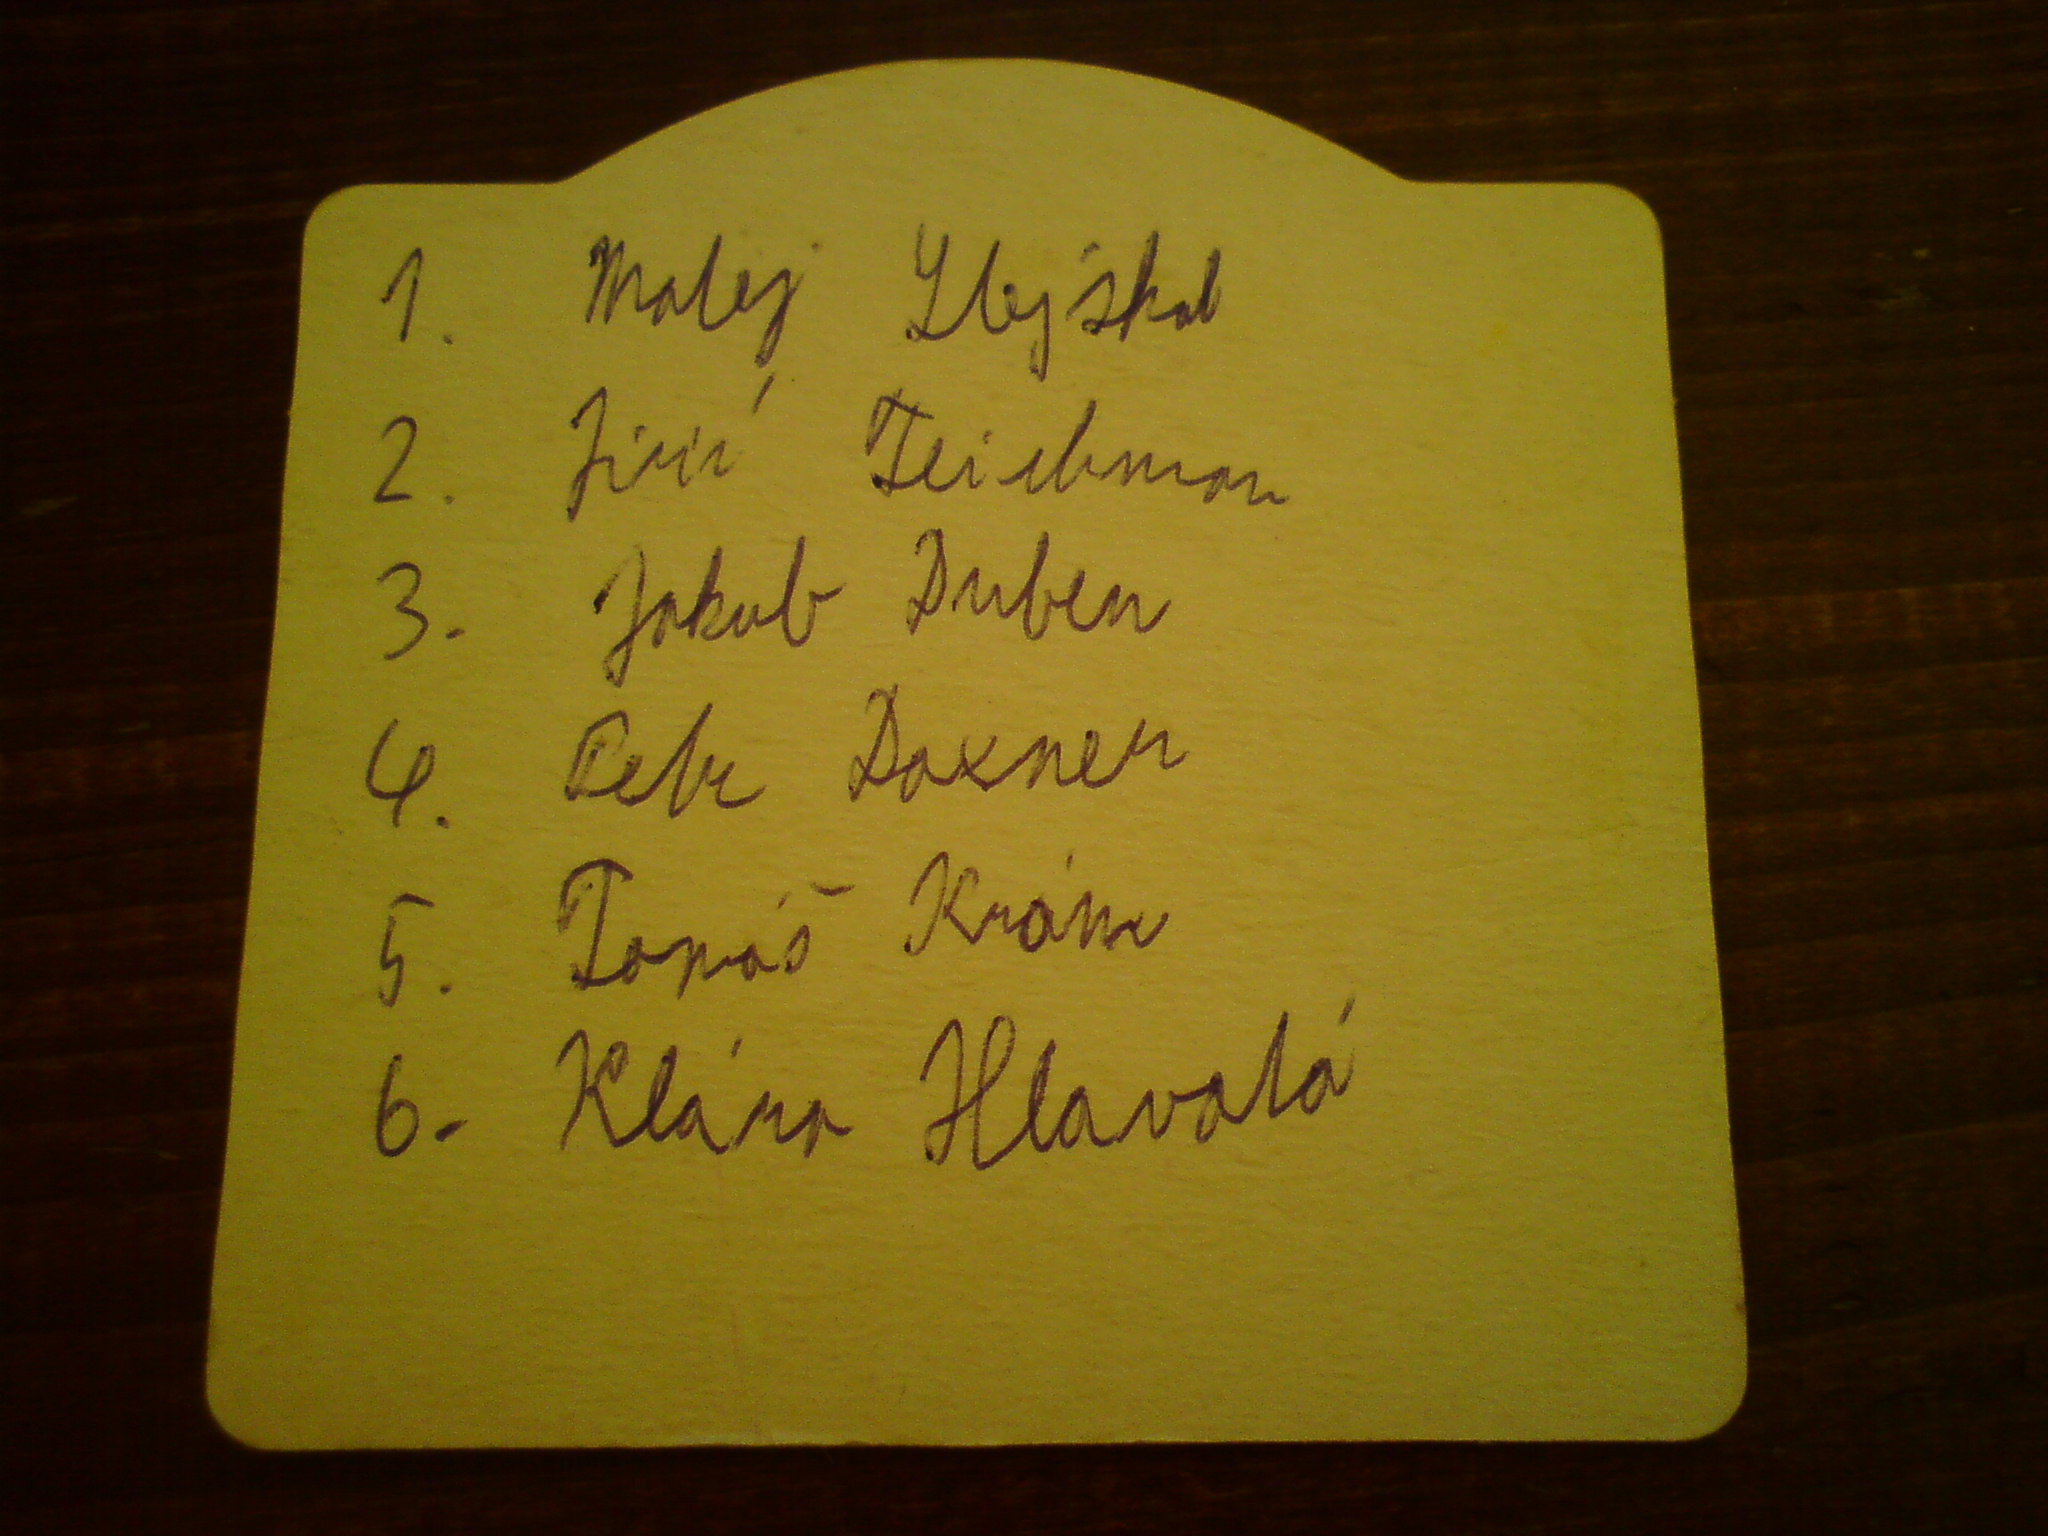 1. Matej Zlejskal
2. Jiří Teichman
3. Jakub Duben
4. Petr Daxner
5. Tomáš
6. Klára Hlavatá